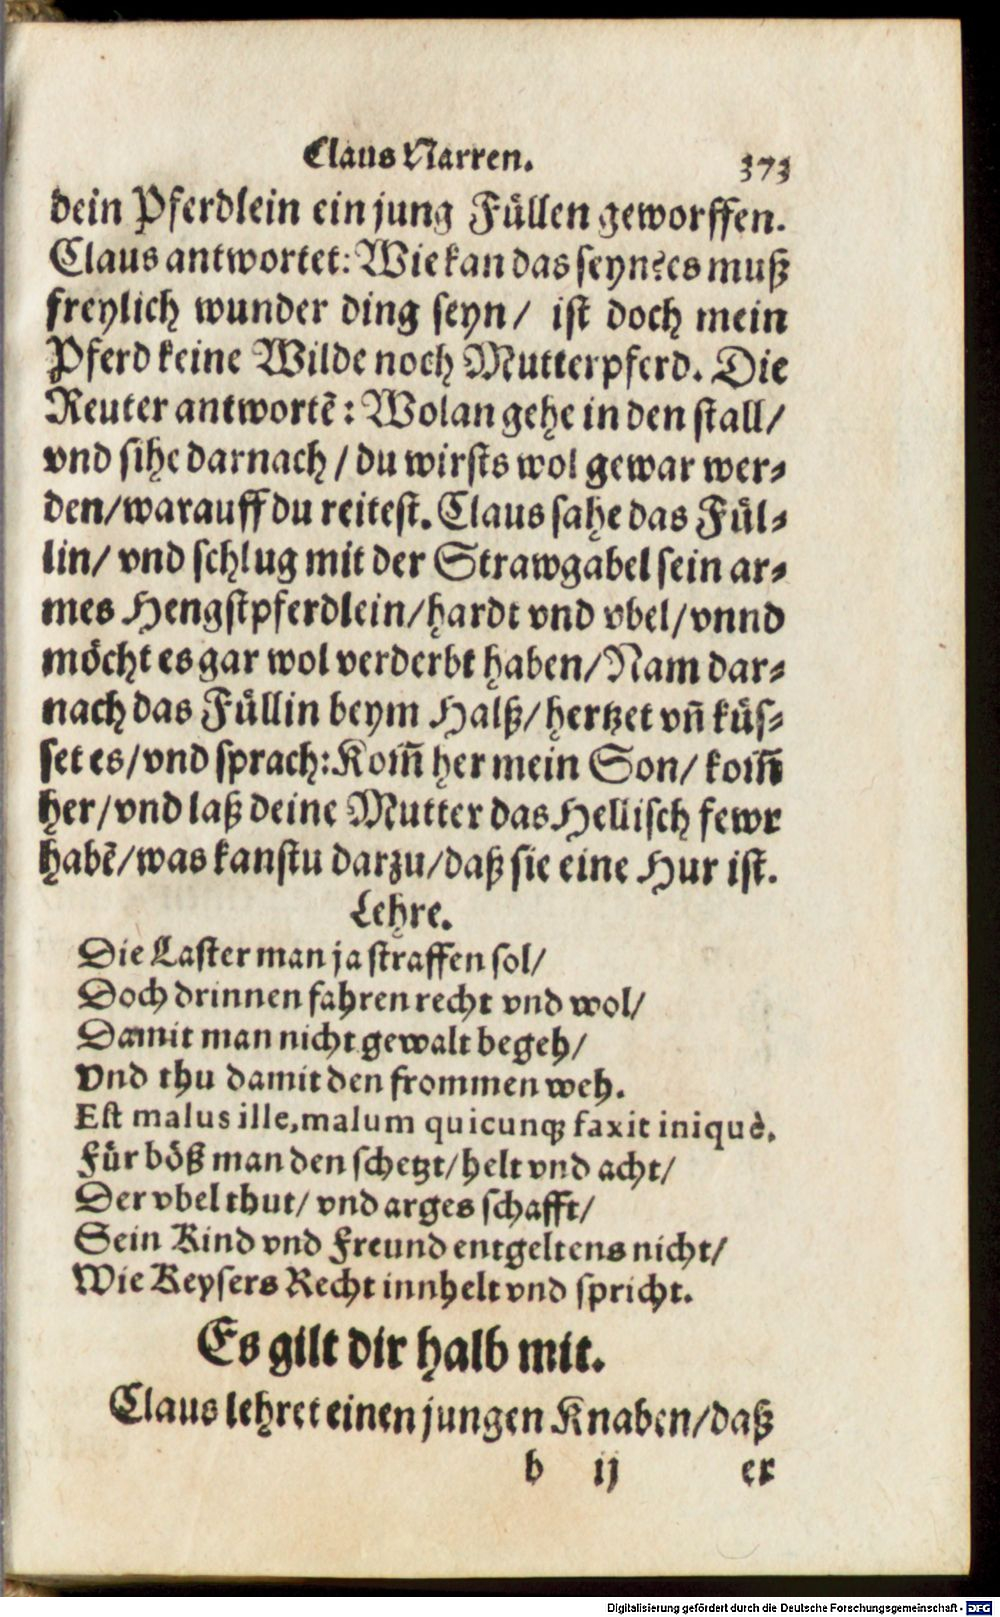 Claus Narren. 373
dein Pferdlein ein jung Füllen geworffen.
Claus antwortet: Wie kan das seyn? es muß
freylich wunder ding seyn/ ist doch mein
Pferd keine Wilde noch Mutterpferd. Die
Reuter antwortẽ: Wolan gehe in den stall/
vnd sihe darnach/ du wirsts wol gewar wer-
den/ warauff du reitest. Claus sahe das Fül-
lin/ vnd schlug mit der Strawgabel sein ar-
mes Hengstpferdlein/ hardt vnd vbel/ vnnd
möcht es gar wol verderbt haben/ Nam dar-
nach das Füllin beym Halß/ hertzet vñ küs-
set es/ vnd sprach: Kom̃ her mein Son/ kom̃
her/ vnd laß deine Mutter das Hellisch fewr
habẽ/ was kanstu darzu/ daß sie eine Hur ist.
Lehre.
Die Laster man ja straffen sol/
Doch drinnen fahren recht vnd wol/
Damit man nicht gewalt begeh/
Vnd thu damit den frommen weh.
Est malus ille, malum quicunqꝫ faxit iniquè.
Für böß man den schetzt/ helt vnd acht/
Der vbel thut/ vnd arges schafft/
Sein Kind vnd Freund entgeltens nicht/
Wie Keysers Recht innhelt vnd spricht.
Es gilt dir halb mit.
Claus lehret einen jungen Knaben/ daß
b ij er
Digitalisierung gefördert durch die Deutsche Forschungsgemeinschaft - DFG